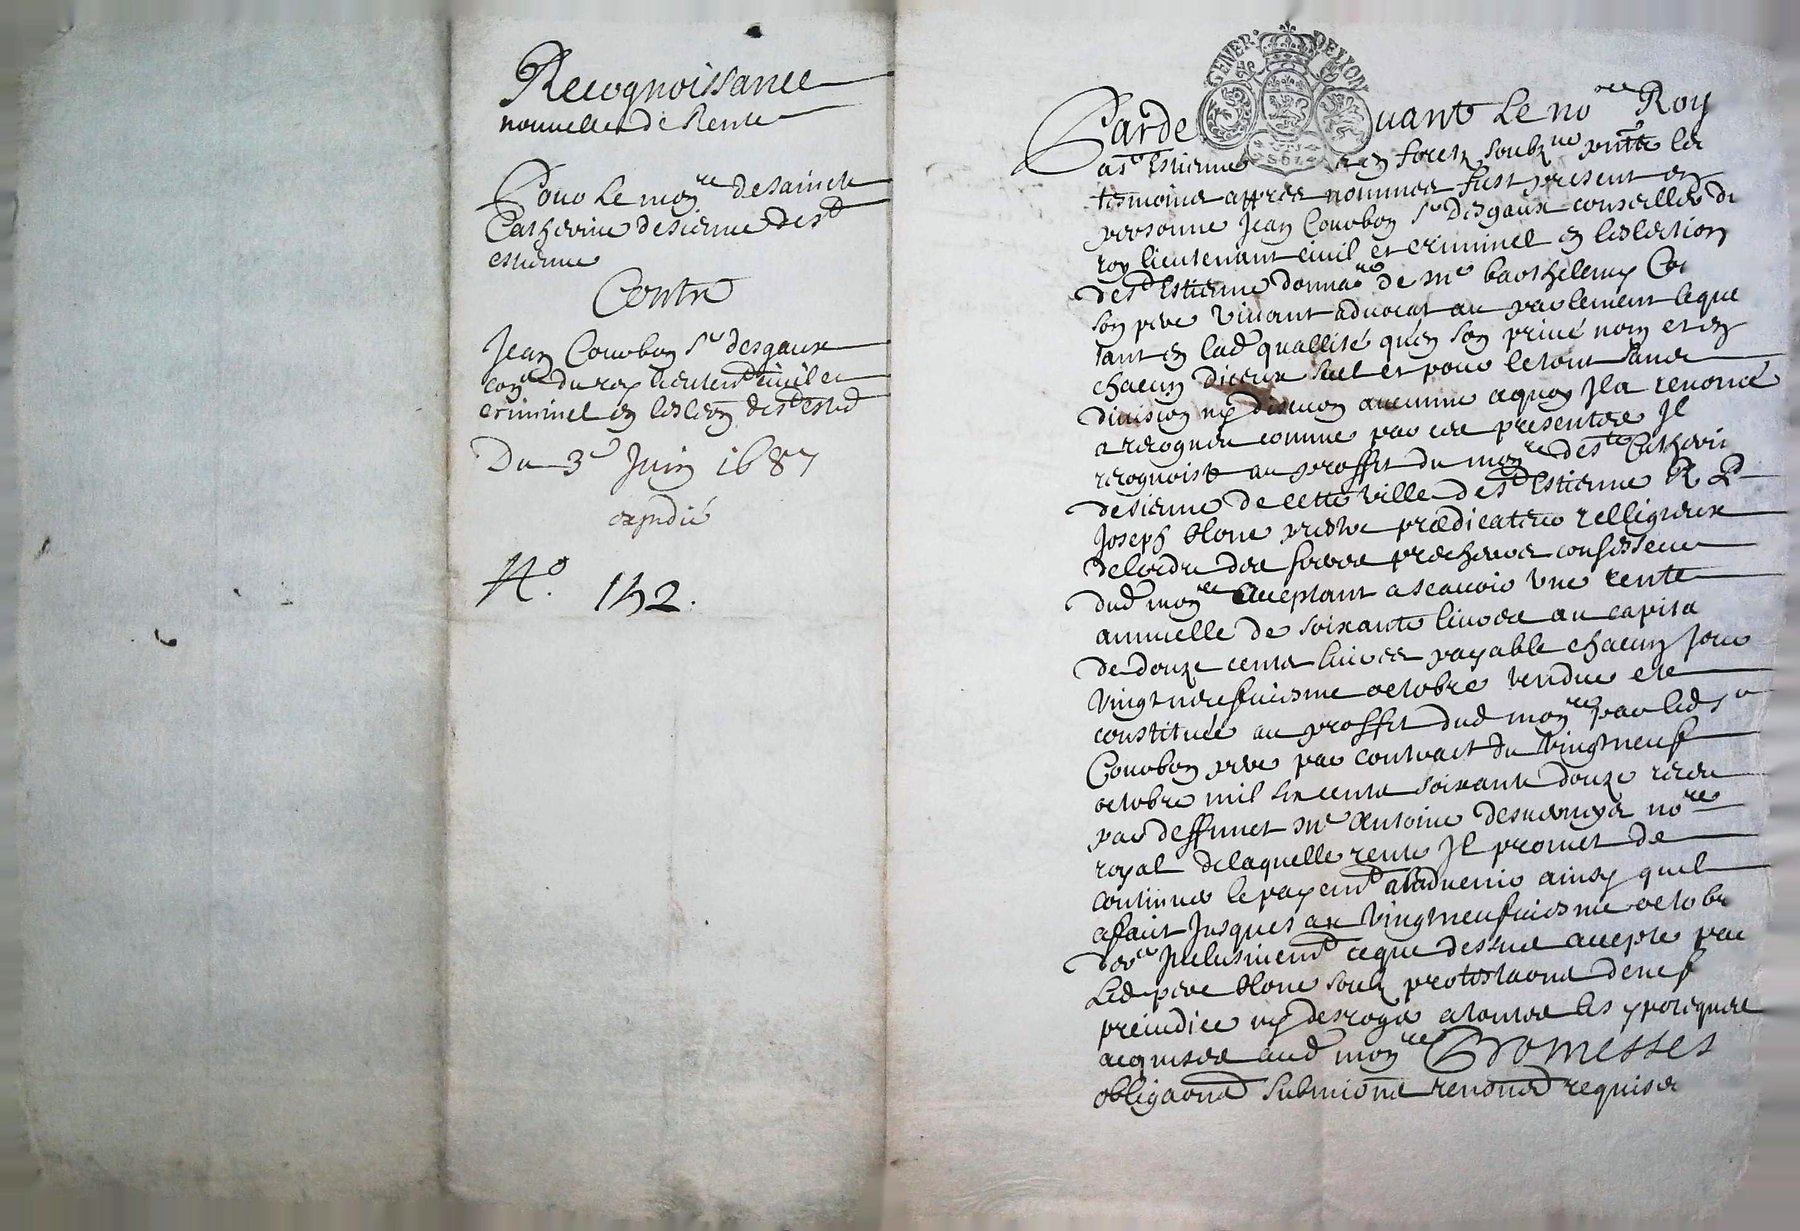 Recognoissance
nouvelle de Rente
Pour Le mon.re de saincte
Catherine de sienne de S.t
estienne
Contre
Jean Courbon S.r desgaux
con.er du roy lieuten.t ciuil et
criminel en leslon de S.t Est.e
Du 3.e Juin 1687
expedié
N.o 142.
GENER. DE LYON
Pardeuant Le no.re Roy
a S.t Estienne en forestz soubz.né presents les
tesmoins appres nommes fust present en
personne Jean Courbon S.r desgaux conseiller du
roy lieutenant ciuil et criminel en leslection
de S.t Estienne donna.re de m.e barthelemy Cour
son pere viuant aduocat au parlement leque
tant en lad. quallité quen son priué nom et en
chacun diceux seul et pour le tout sans
diuision ny discution aucunne a quoy Jl a renoncé
a recogneu comme par ces presentes Jl
recognoist au proffit du mon.re de S.te Catherin
de sienne de cette ville de S.t Estienne R. P.
Joseph blone prestre prædicateur relligieux
de lordre des freres prescheurs confesseur
dud. mon.re acceptant a scauoir vne rente
annuelle de soixante liures au capita
de douze cents liures payable chacun jour
vingt neufuiesme octobre vendue et
constituée au proffit dud. mon.re par led. S.r
Courbon pere par contract du vingt neuf
octobre mil six cents soixante douze receu
par deffunct m.e Antoine desuernays no.re
royal de laquelle rente Jl promet de
continuer le payem.t a laduenir ainsy quil
a fait Jusques au vingt neufuiesme octobr
der.er Jnclusiuem.t ce que dessus accepte par
Led. pere blone soubz protestaons de ne s
preiudicer ny desroger a toutes les ypoteques
acquises aud. mon.re Promesses
obligaons submions renons requises